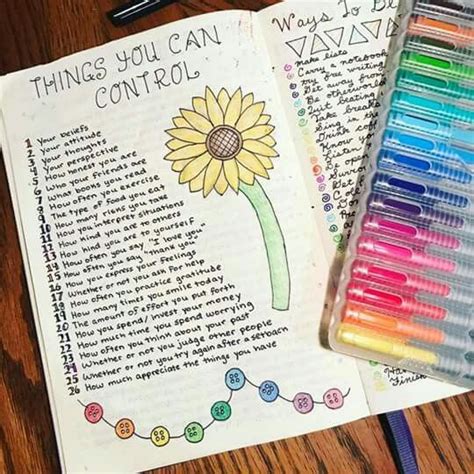 THINGS YOU CAN
CONTROL
1 Your beliefs
2 Your attitude
3 Your thoughts
4 Your perspective
5 How honest you are
6 Who your friends are
7 What books you read
8 How often you exercise
9 The type of food you eat
10 How many risks you take
11 How you interpret situations
12 How kind you are to others
13 How kind you are to yourself
14 How often you say "I love you"
15 How often you say "thank you"
16 How you express your feelings
17 Whether or not you ask for help
18 How often you practice gratitude
19 How many times you smile today
20 The amount of effort you put forth
21 How you spend/invest your money
22 How much time you spend worrying
23 How often you think about your past
24 Whether or not you judge other people
25 Whether or not you try again after a setback
26 How much appreciate the things you have
Ways To Be
make lists
Carry a notebook
try free writing
Get away from
Be
Quit beating
Take breaks
Sing in the
Drink
Know
Listen
open
Finish